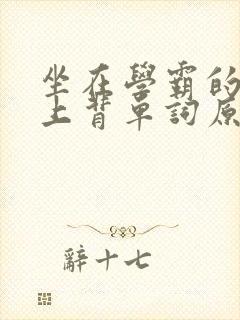 坐在學霸的
上背單詞原
辭十七